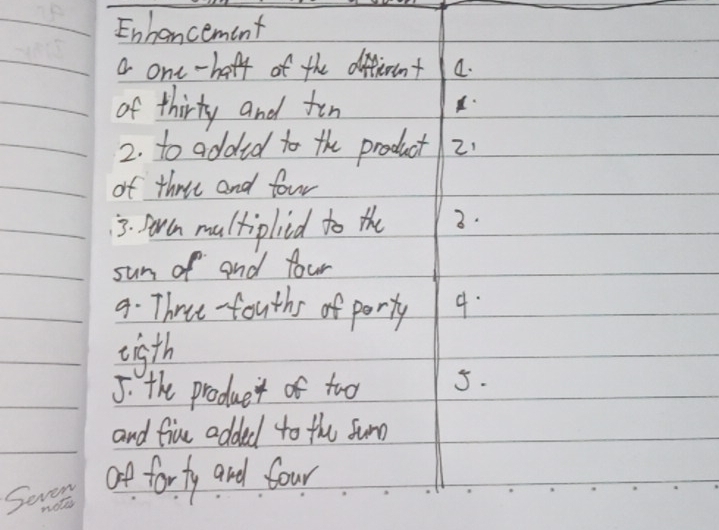 Enhancement
a one-haft of the different a.
of thirty and ten 1.
2. to added to the product 2.
of three and four
3. Seven multiplied to the 3.
sum of and four
4. Three-fouths of porty 4.
eigth
5. the product of two 5.
and five added to the sum
of forty and four
Seven
notes